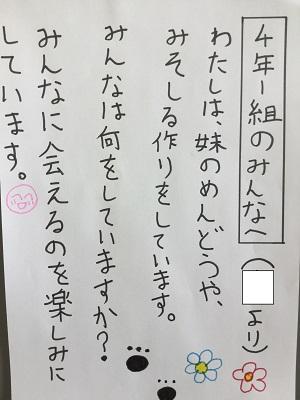 4年1組のみんなへ(より)
わたしは、妹のめんどうや、
みそしる作りをしています。
みんなは何をしていますか?
みんなに会えるのを楽しみに
しています。